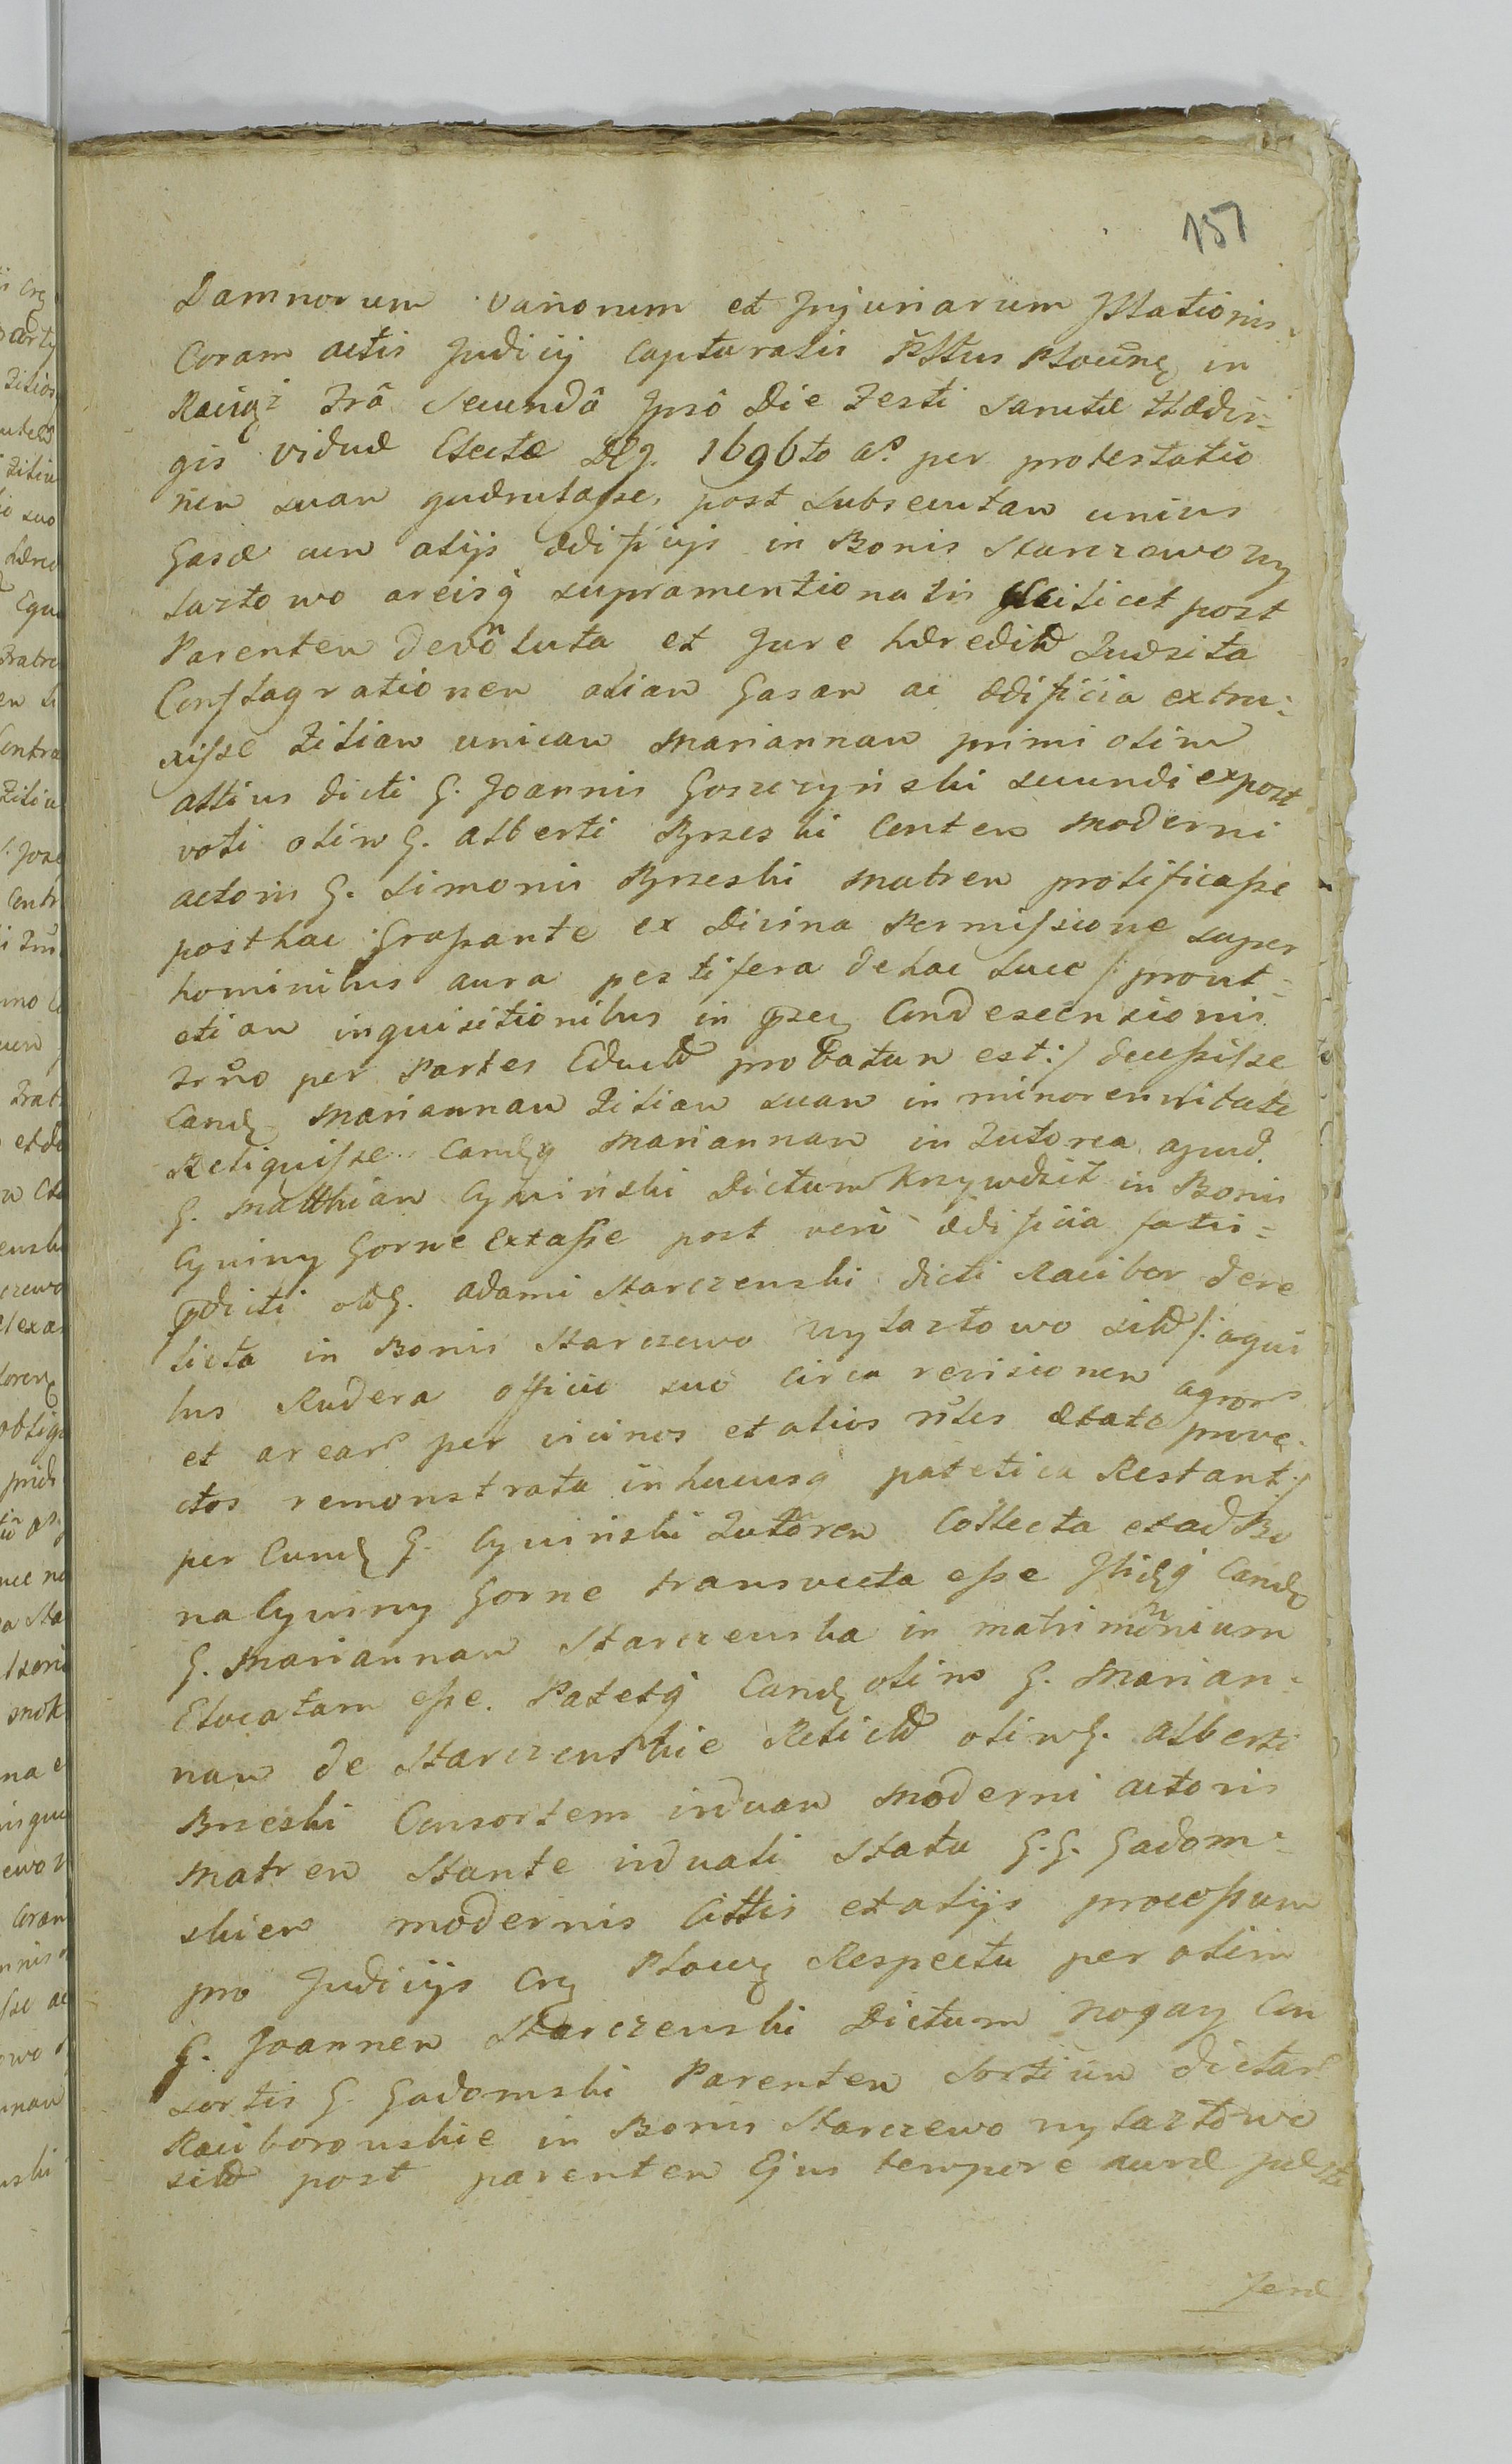 157
Damnorum variorum et Injuriarum Illationis
Coram actis Judicij Capturalis Plttus Plocens in
Raciąż Frâ Secundâ Ipso Die Festi Sanctæ Hædvi-
gis viduæ Electæ 1696to a° per protestatio
nem suam quærulasse, post subsecutam unius
Casæ cum alijs ædificijs in Bonis Starczewo wy
łaztowo areisq supramentionatis scilicet post
Parentem devoluta et Jure hæredit quæsita
Conflagrationem aliam Casam ac ædificia extru-
xisse Filiam unicam Mariannam primi olim
altius dicti G. Joannis Goszczyński secundi expost
voti olim G. Alberti Brzeski Conten moderni
actoris G. Simonis Brzeski Matrem prolificasse
posthac Grassante ex Divina Permissione super
hominibus aura pestifera de hac luce /: prout
etiam inquisitionibus in Condescensionis
Trno per Partes Educt probatum est :/ decessisse
Eand Mariannam Filiam suam in minorennitate
Reliquisse Eandq Mariannam in Tutorea apud
G. Matthiam Cywiński Dictum Krzywdzit in Bonis
Cywiny Gorne Extasse post vero ædificia fatis-
pdicti ol G. Adami Starczewski dicti Racibor dere
licta in Bonis Starczewo wyłaztowo sit /: a qui
bus Rudera officio suo circa revisionem agror
et arear per vicinos et alios nles ætate prove-
ctos remonstrata in hucusq patetica Restant :/
per Eund G. Cywiński Tutorem Collecta et ad Bo
na Cywiny Gorne transvecta esse Ibidq Eand
G. Mariannam Starczewska in matrimonium
Elocatam esse. Patetq Eand olim G. Marian-
nam de Starczewskie Relict olim G. Alberti
Brzeski Consortem viduam moderni actoris
Matrem Stante viduali Statu G.G. Gadom-
skiew modernis Cittis et alijs processum
pro Judicijs Cry Plocen Respectu per olim
G. Joannem Starczewski Dictum Nogay Con
sortis G. Gadomski Parentem Sortium dictar
Raciborowskie in Bonis Starczewo wyłaztowo
sit post parentem Ejus tempore auræ pesti
feræ